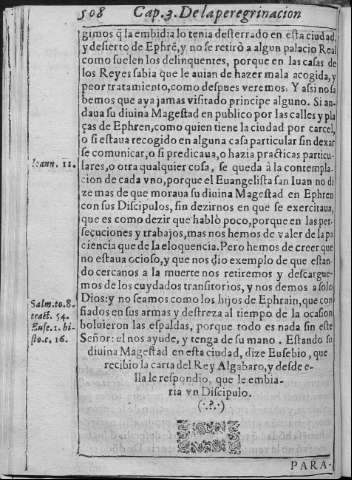 508 Cap. 3. De la peregrinacion
gimos q̃ la embidia lo tenia desterrado en esta ciudad,
y desierto de Ephrẽ, y no se retirò a algun palacio Real
como suelen los delinquentes, porque en las casas de
los Reyes sabia que le auian de hazer mala acogida, y
peor tratamiento, como despues veremos. Y assi no sa
bemos que aya jamas visitado principe alguno. Si an-
daua su diuina Magestad en publico por las calles y pla
ças de Ephren, como quien tiene la ciudad por carcel,
o si estaua recogido en alguna casa particular sin dexar
se comunicar, o si predicaua, o hazia practicas particu-
Ioann. 11.
lares, o otra qualquier cosa, se queda à la contempla-
cion de cada vno, porque el Euangelista san Iuan no di
ze mas de que moraua su diuina Magestad en Ephren
con sus Discipulos, sin dezirnos en que se exercitaua,
que es como dezir que hablò poco, porque en las per-
secuciones y trabajos, mas nos hemos de valer de la pa
ciencia que de la eloquencia. Pero hemos de creer que
no estaua ocioso, y que nos dio exemplo de que estan-
do cercanos a la muerte nos retiremos y descargue-
mos de los cuydados transitorios, y nos demos a solo
Salm. to. 8.
tract. 54.
Euse. l. hi-
sto. c. 16.
Dios: y no seamos como los hijos de Ephrain, que con
fiados en sus armas y destreza al tiempo de la ocasion
boluieron las espaldas, porque todo es nada sin este
Señor: el nos ayude, y tenga de su mano. Estando su
diuina Magestad en esta ciudad, dize Eusebio, que
recibio la carta del Rey Algabaro, y desde e-
lla le respondio, que le embia-
ria vn Discipulo.
(.?.)
PARA-